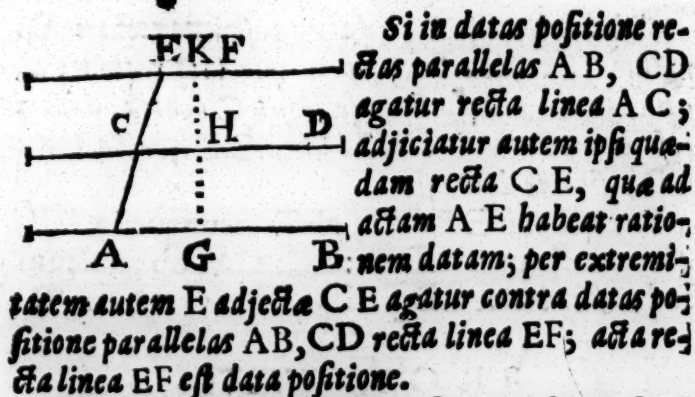 E K F
C H D
A G B
Si in datas poſitione re-
ctas parallelas A B, CD
agatur recta linea A C;
adjiciatur autem ipſi quæ-
dam recta C E, quæ ad
actam A E habeat ratio-
nem datam; per extremi-
tatem autem E adjectæ C E agatur contra datas po-
ſitione parallelas AB, CD recta linea EF; acta re-
cta linea EF eſt data poſitione.